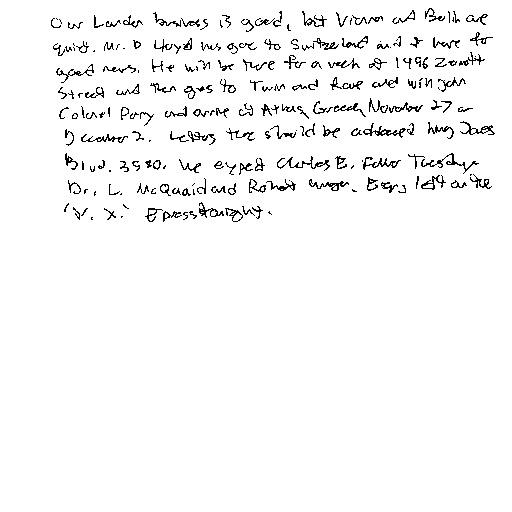 Our London business is good, but Vienna and Berlin are
quiet. Mr. D Lloyd has gone to Switzerland and I have for
good news. He will be there for a week at 1496 Zermott
Street and then goes to Turin and Rome and will join
Colonel Parry and arrive at Athens, Greece, November 27 or
December 2. Letters there should be addressed King James
Blvd. 3580. We expect Charles E. Fuller Tuesday.
Dr. L. McQuaid and Robert Unger, Esq., left on the
"Y. X." Express tonight.